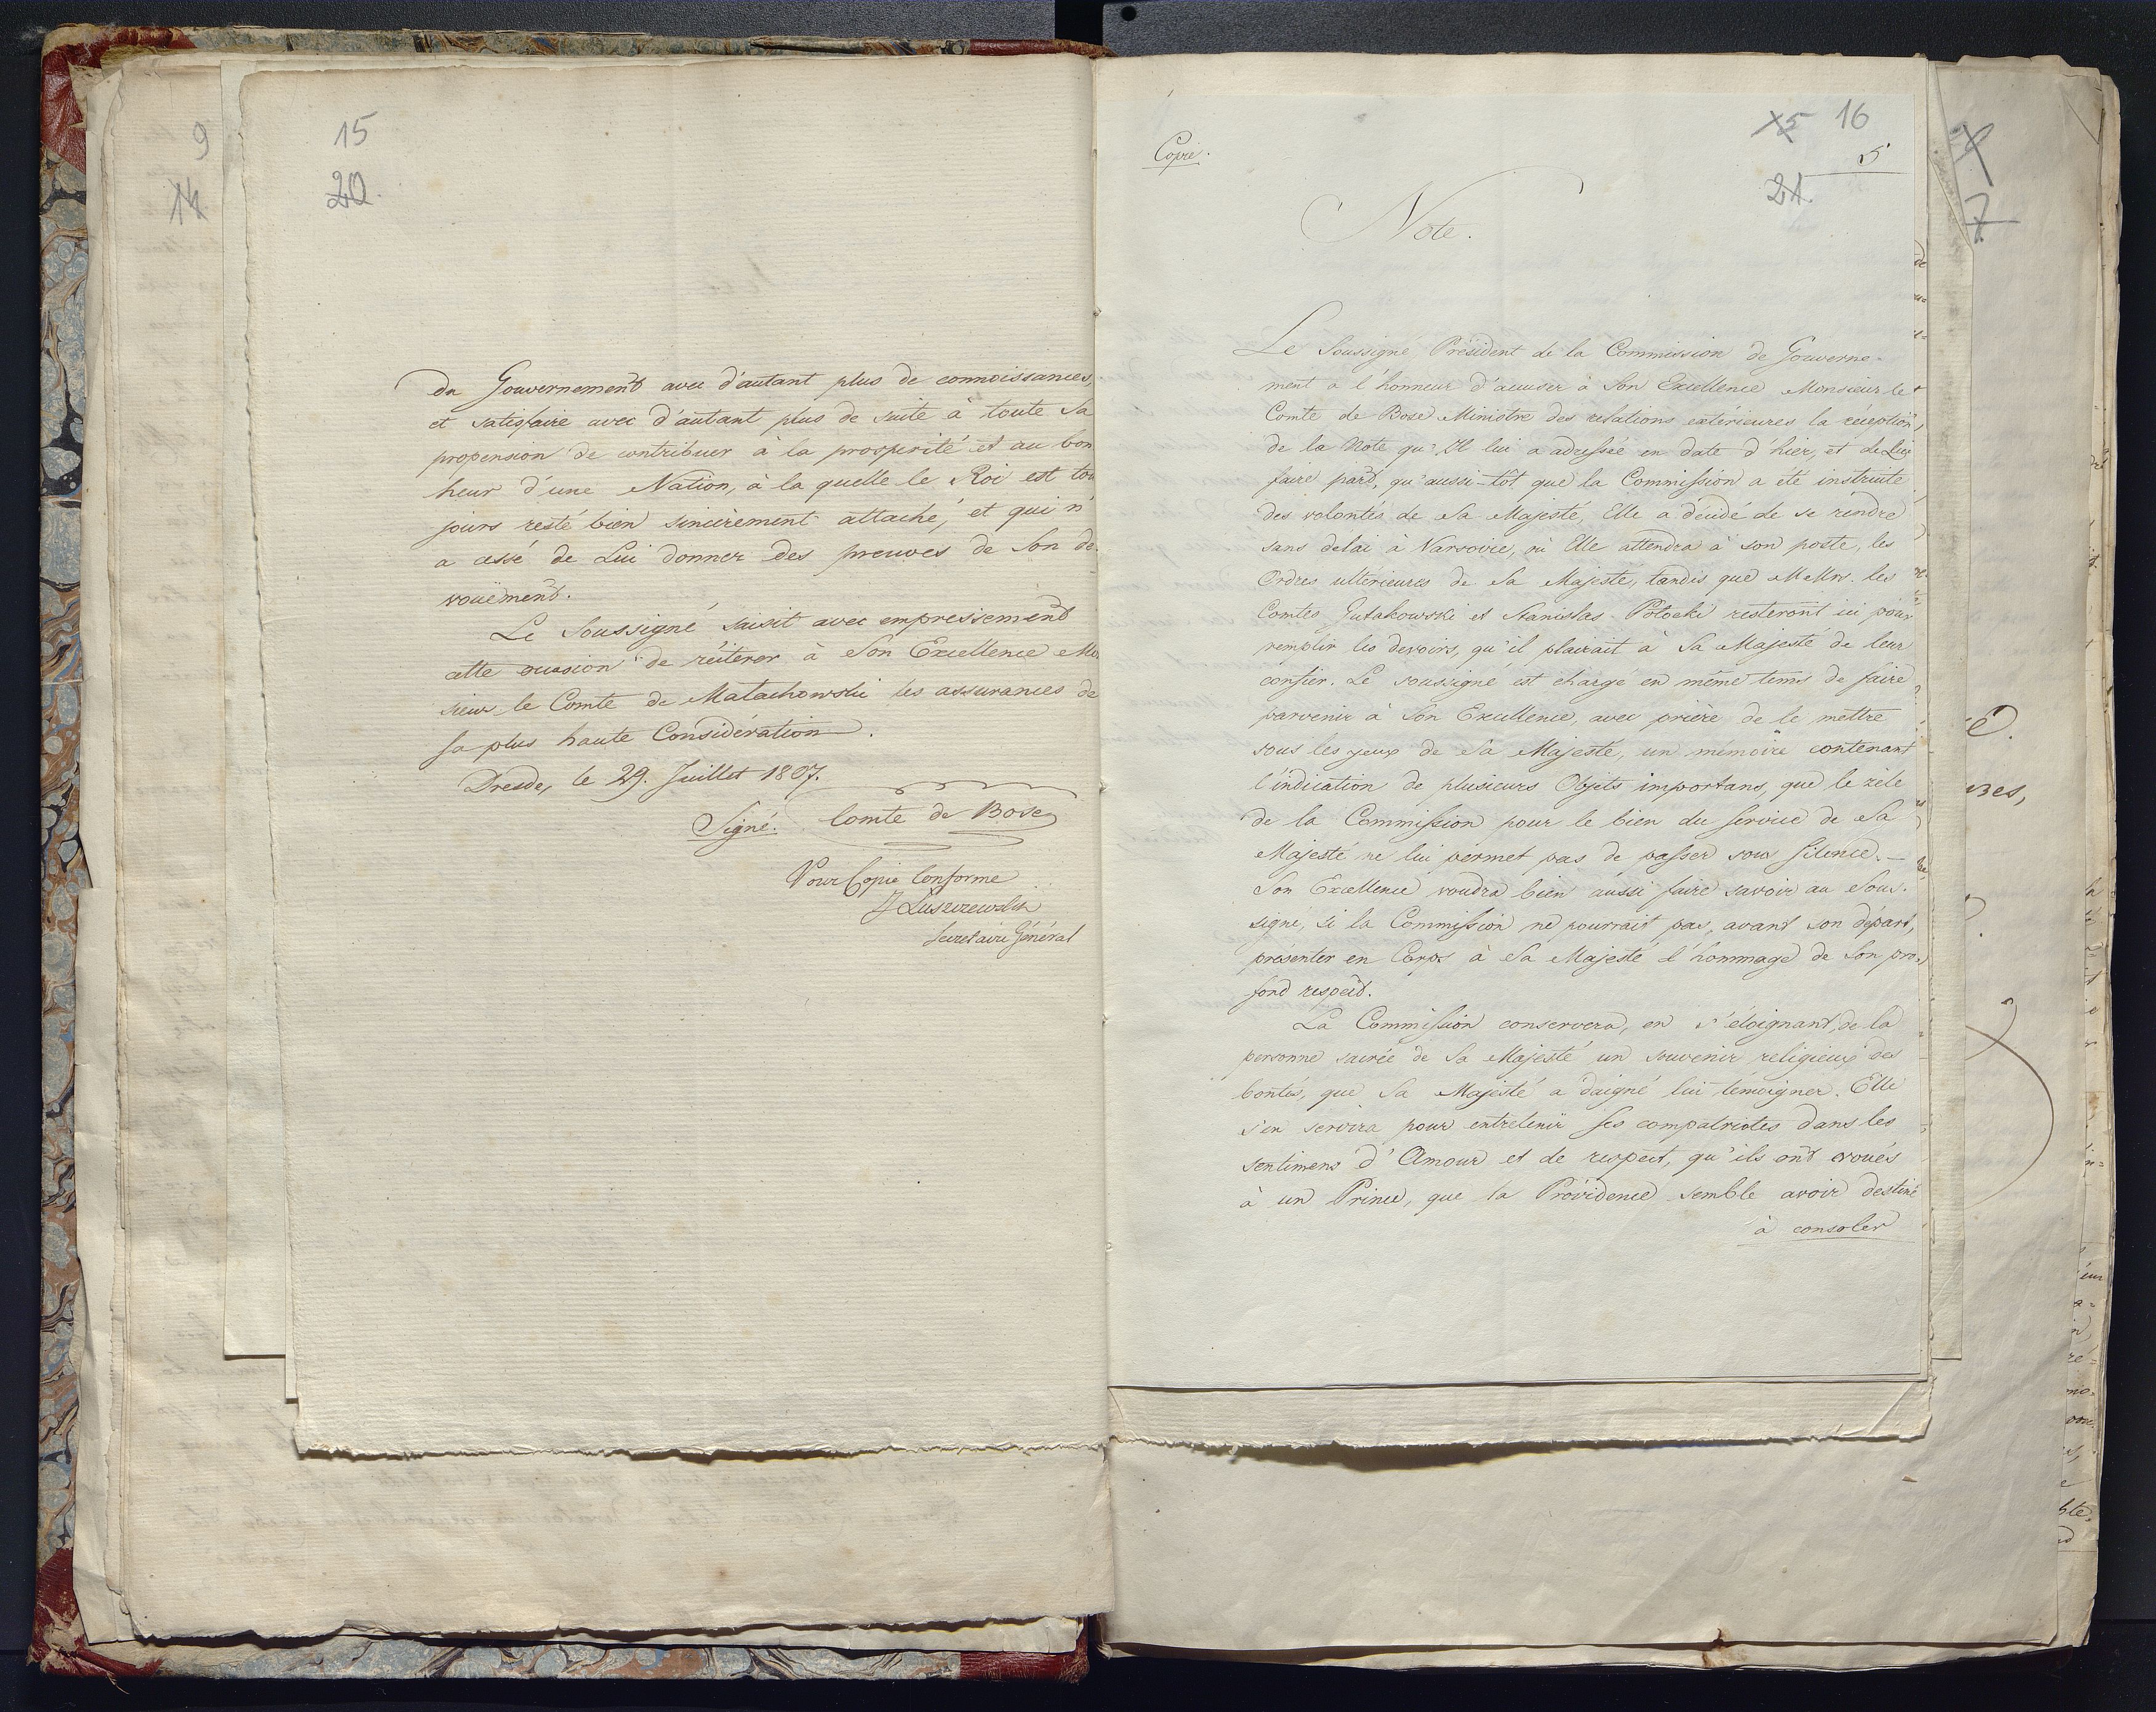 9
14
15
20.
du Gouvernement avec d'autant plus de connoissances,
et satisfaire avec d'autant plus de suite à toute Sa
propension de contribuer à la prosperité et au bon
heur d'une Nation, à la quelle le Roi est tou
jours resté bien sincèrement attaché, et qui n'
a cessé de Lui donner des preuves de Son de
vouëment.
Le Soussigné saisit avec empressement
cette occasion de réiterer à Son Excellence Mon
sieur le Comte de Małachowski les assurances de
Sa plus haute Considération.
Dresde, le 29. Juillet 1807.
Signé. Comte de Bose
Pour Copie Conforme
J Łuszczewski
Secretaire Général
Copie.
15 16
5
21.
Note.
Le Soussigné Président de la Commission de Gouverne-
ment a l'honneur d'accuser à Son Excellence Monsieur le
Comte de Bose Ministre des relations extérieures la réception
de la Note qu'Il lui a adressée en date d'hier, et de Lui
faire part, qu'aussi-tôt que la Commission a été instruite
des volontés de Sa Majesté, Elle a décidé de se rendre
sans delai à Varsovie, où Elle attendra à son poste, les
Ordres ultérieures de Sa Majesté, tandis que MeMrs. les
Comtes Gutakowski et Stanislas Potocki resteront ici pour
remplir les devoirs, qu'il plairait à Sa Majesté de leur
confier. Le soussigné est chargé en même tems de faire
parvenir à Son Excellence, avec prière de le mettre
sous les yeux de Sa Majesté, un mémoire contenant
l'indication de plusieurs Objets importans, que le zèle
de la Commission pour le bien du service de Sa
Majesté ne lui permet pas de passer sous silence. —
Son Excellence voudra bien aussi faire savoir au Sous-
signé, si la Commission ne pourrait pas, avant son départ,
présenter en Corps à Sa Majesté l'hommage de Son pro-
fond respect.
La Commission conservera, en s'éloignant, de la
personne sacrée de Sa Majesté un souvenir religieux des
bontés, que Sa Majesté a daigné lui témoigner. Elle
s'en servira pour entretenir ses compatriotes dans les
sentimens d'Amour et de respect, qu'ils ont voués
à un Prince, que la Providence semble avoir destiné
à consoler
7